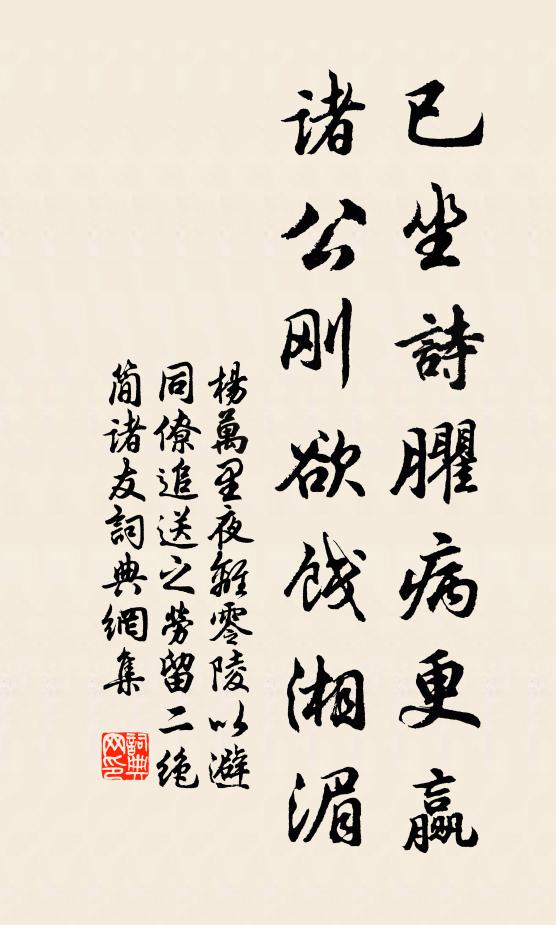 已坐詩臞病更羸
诸公刚欲饯湘湄
楊萬里夜離零陵以避
同僚追送之勞留二絶
簡诸友詞典網集
詞典网印